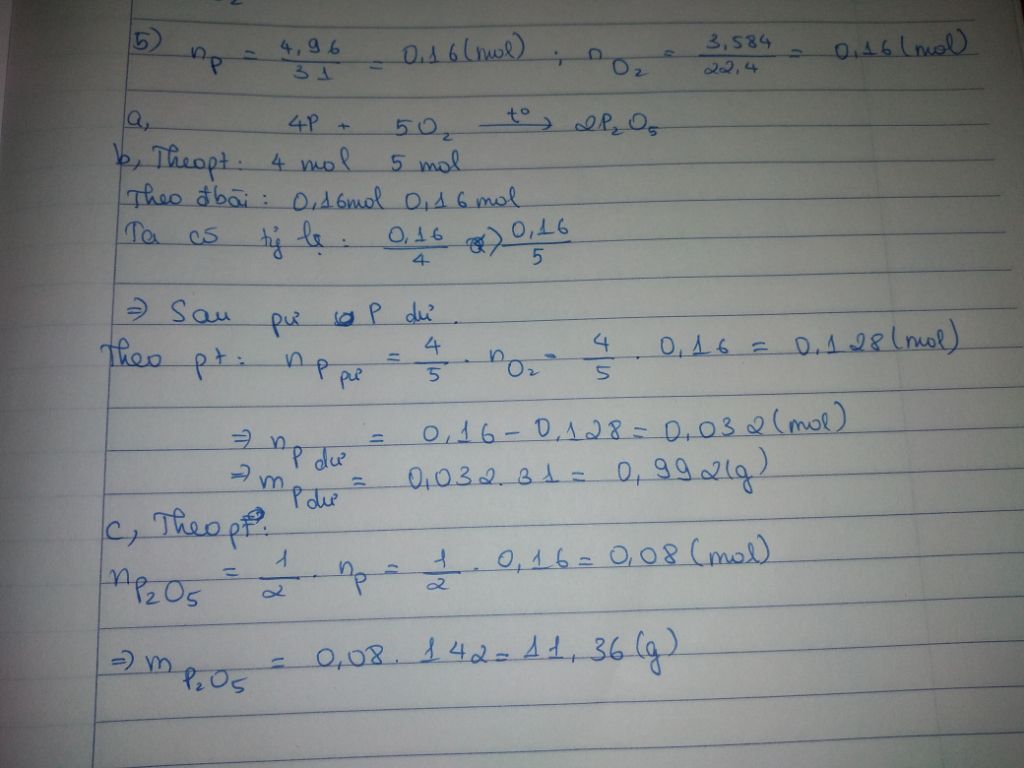 5) n_P = 4,96/31 = 0,16 (mol) ; n_O₂ = 3,584/22,4 = 0,16 (mol)
a, 4P + 5O₂ —t°→ 2P₂O₅
b, Theo pt: 4 mol 5 mol
Theo đbài : 0,16mol 0,16 mol
Ta có tỷ lệ : 0,16/4 > 0,16/5
⇒ Sau pư P dư.
Theo pt: n_P pư = 4/5 . n_O₂ = 4/5 . 0,16 = 0,128 (mol)
⇒ n_P dư = 0,16 - 0,128 = 0,032 (mol)
⇒ m_P dư = 0,032 . 31 = 0,992 (g)
c, Theo pt:
n_P₂O₅ = 1/2 . n_P = 1/2 . 0,16 = 0,08 (mol)
⇒ m_P₂O₅ = 0,08 . 142 = 11,36 (g)